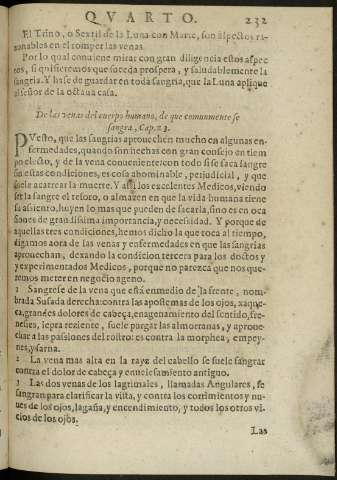 QVARTO. 232
El Trino, o Sextil de la Luna con Marte, son aspectos ra-
zonables en el romper las venas.
Por lo qual conuiene mirar con gran diligencia estos aspec
tos, si quisieremos que suceda prospera, y saludablemente la
sangria. Y hase de guardar en toda sangria, que la Luna aplique
al señor de la octaua casa.
De las venas del cuerpo humano, de que comunmente se
sangra, Cap. 23.
PVesto, que las sangrias aprouechen mucho en algunas en-
fermedades, quando son hechas con gran consejo en tiem
po electo, y de la vena conueniente: con todo si se saca sangre
sin estas condiciones, es cosa abominable, perjudicial, y que
suele acatrear la muerte. Y assi los excelentes Medicos, viendo
ser la sangre el tesoro, o almazen en que la vida humana tiene
su asiento, huyen lo mas que pueden de sacarla, sino es en oca
siones de grandissima importancia, y necesidad. Y porque de
aquellas tres condiciones, hemos dicho la que toca al tiempo,
digamos aora de las venas y enfermedades en que las sangrias
aprouechan, dexando la condicion tercera para los doctos y
y experimentados Medicos, porque no parezca que nos que-
remos meter en negocio ageno.
1 Sangrese de la vena que està enmedio de la frente, nom-
brada Susada derecha: contra las apostemas de los ojos, xaque-
ca, grandes dolores de cabeça, enagenamiento del sentido, fre-
nesies, lepra reziente, suele purgar las almorranas, y aproue-
char a las passiones del rostro: es contra la morphea, empey-
nes, y sarna.
2 La vena mas alta en la rayz del cabello se suele sangrar
contra el dolor de cabeça y enuelesamiento antiguo.
3 Las dos venas de los lagrimales, llamadas Angulares, se
sangran para clarificar la vista, y contra los corrimientos y nu-
ues de los ojos, lagaña, y encendimiento, y todos los otros vi-
cios de los ojos.
Las